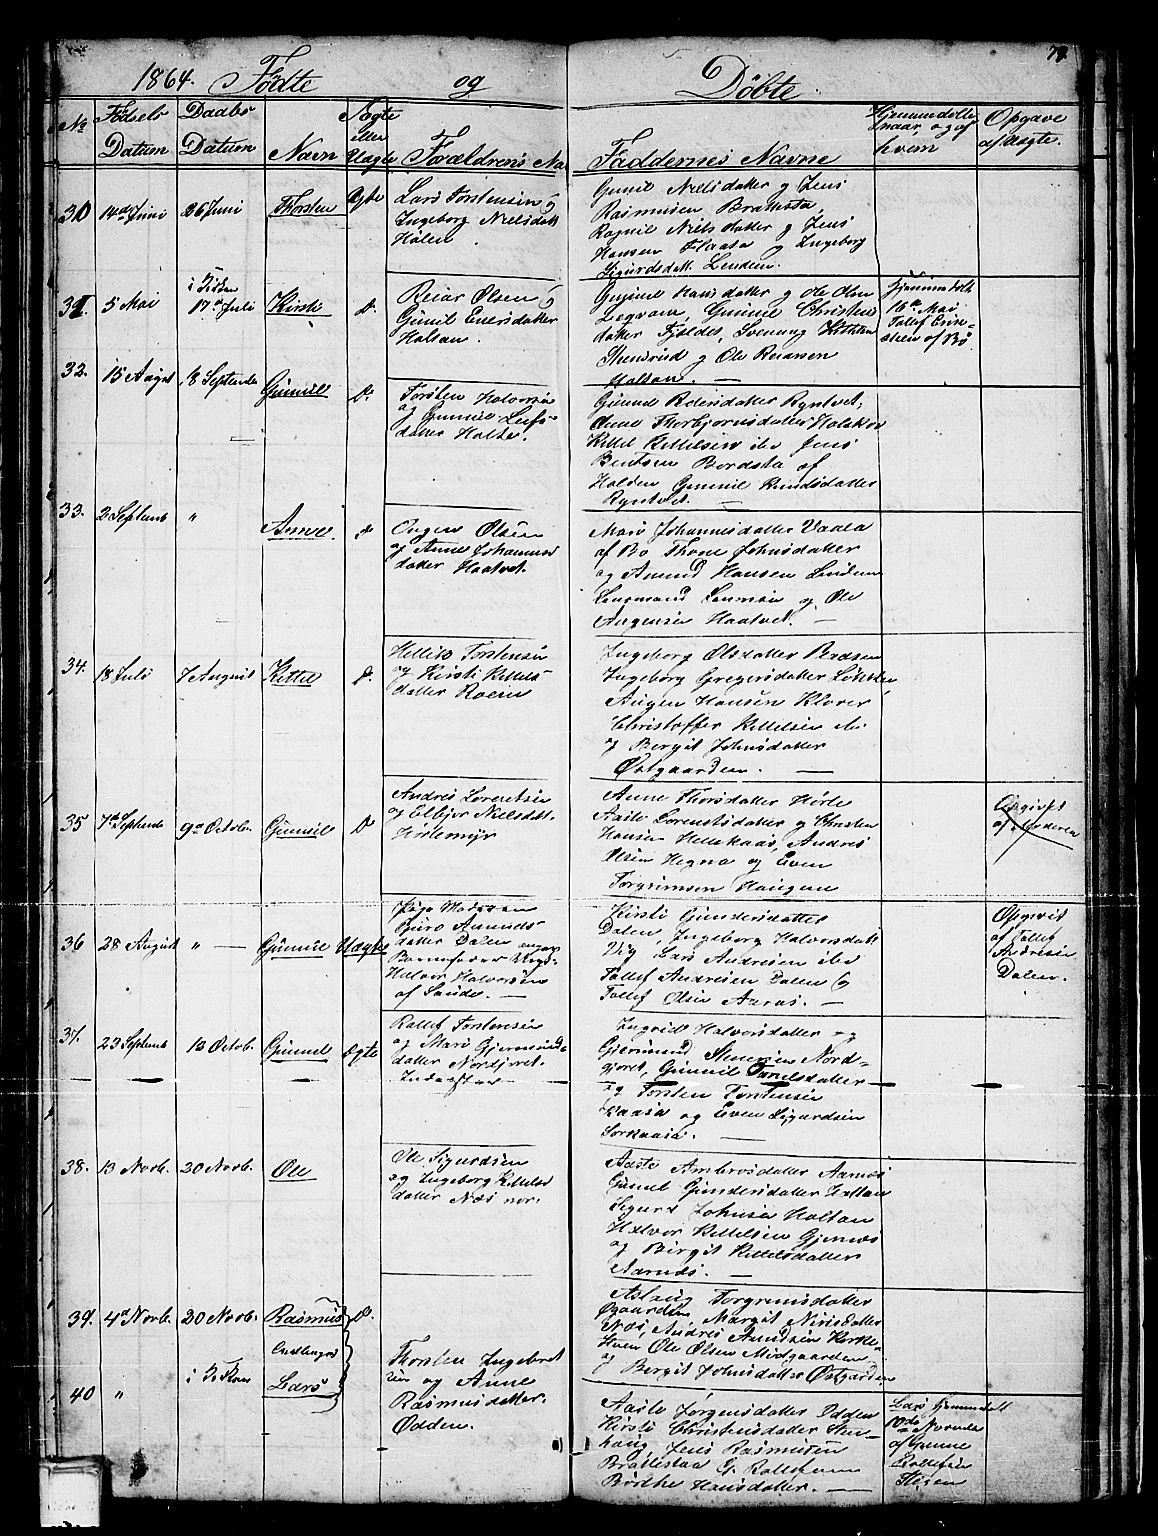 79.
1864. Fødte og Døbte.
No Fødsels Datum
Daabs Datum
Navn
Ægte eller Uægte
Forældrens Na
Faddernes Navne
Hjemmedøbte naar og af hvem
Opgave af Uægte.
30 14de Juni 26 Juni Thorsten Ægte
Lars Torstensen og
Ingeborg Nielsdatt
Holen
Gunil Nielsdatter og Jens
Rasmusen
Ragnil Nielsdatter og Jens
Hansen Flaata og Ingeborg
Sigurdsdatt. Lindem.
31. 5 Mai i Kirken 17de Juli Kirsti Do.
Reiar Olsen og
Gunil Enersdatter
Holtan.
Gunild Hansdatter og Ole Olsn
Legvam, Gunnil Christens
datter Fjeldet, Svenung Kittilsen
og Ole Reiarsen
Holtan. —
Hjemmedøbt
16de Mai
Tollef
af Bø
32. 15 August 18 September Gunnil Do.
Torsten Halvorsen
og Gunnil Leifs-
datter Holte.
Gunild
Anne Thorbjornsdatter
Kittel Kittelsen ibr Jens
Bentsen Bordsta af
Holden Gunnil
Ryntvet. —
33. 2 Septemb " Anne Do
Ougen Olsen
og Anne Johannes
datter Haatvet.
Mari Johannesdatter Vaala
af Bø Thone Johnsdatter
og Amund Hansen Lindem
og Ole
Augensen Haatvet. —
34. 18 Juli 7 August Kittel Do.
Kittil Torstensen
og Kirsti Kittels
datter Roem
Ingeborg Olsdatter
Ingeborg Gregersdatter
Augen Hansen Klover
Christoffer Kittelsen
og Bergit Johnsdatter
Østgaarden. —
35 7de Septemb 9de Octob. Gunnil Do
Andres Lorentsen
og Elbjor Nielsdatt.
Hørtemyr
Anne Thorsdatter Hørte
Aaste Lorentsdatter og Christen
Hansen Hellekaas, Andres
Olsen Hegna og Even
Torgrimsen Haugen
Opgivet
af Moderen
36 28 August " — Gunnil Uægte
Madsen
Guro Amunds-
datter Dalen angav
Barnefader
Halvor Halvorsen
af Saude. —
Kirsti Gundersdatter
Dalen, Ingeborg Halvorsdatt
Vig Lars Andresen ibr
Tollef Andresen Dalen og
Tollef Olsen Aarnes. —
Opgivet
af Tollef
Andresen
Dalen.
37. 23 Septemb 13 Octob. Gunnil Ægte
Rollef Torstensen
og Mari Gjermunds
datter Nordjoret.
Inderster
Ingrid Halvorsdatter og
Gjermund Stenersen Nord-
gjoret, Gunnil
og Torsten Torstensen
Kaasa og Even Sigurdsen
Sorkaasa. —
38. 13 Novb. 20 Novb. Ole
Ole Sigurdsen
og Ingeborg Kittels
datter Næs nor.
Aaste Ambrosdatter Aarnes
Gunil Gundersdatter Holtan
Sigurd Johnsen Holtan
Halvor Kittelsen Gjernes
og Birgit Kittelsdatter
Aarnes. —
39. 4de Novb. 20 Novb. Rasmus Do.
Tvillinger
40 " i Kirken Lars
Thorsten Ingebret
sen og Anne
Rasmusdatter
Odden.
Aslaug Torgrimsdatter
Øgaarden Margit Nirisdatter
Næs, Andres Amundsen
Ole Olsen Midgaarden
og Bergit Johnsdatter Østgarden
Aaste Jorgensdatter Odden
Kirsti Christensdatter Sten-
haug, Jens Rasmusen
Brattestaa G. Rollefsen
Hansdatter. —
Lars Hjemmedøbt
10de Novemb
af Gunne
Rollefsen
Stegen